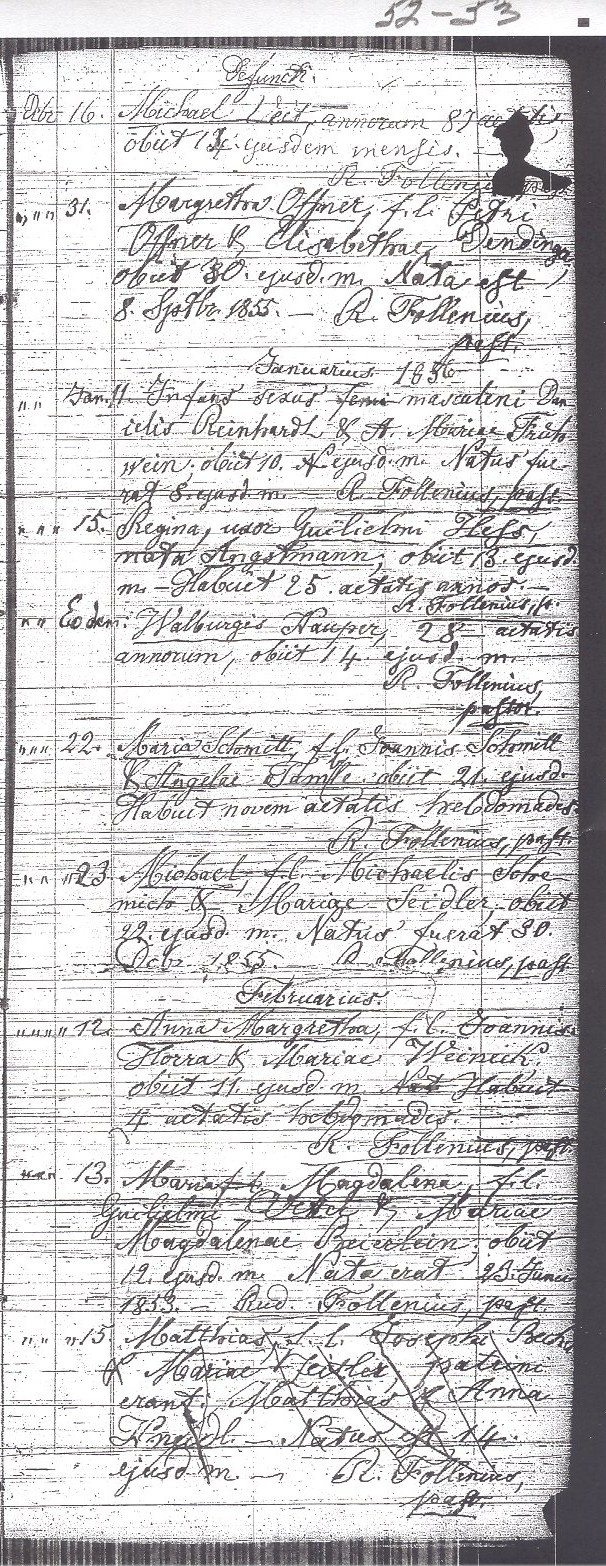 52-53
Defuncti.
16. Michael annorum 87 aetatis,
obiit 14. ejusdem mensis.
R. Follenius
""" 31. Margretha Offner, f. l. Petri
Offner & Elisabethae Dendinger,
obiit 30. ejusd. m. Nata est
8. Sptbr. 1855. — R. Follenius,
past.
Januarius 1856
"" Jan. 11. Infans sexus masculini Dan
ielis Reinhardt & A. Mariae Früh
wein. obiit 10. ejusd. m. Natus fue-
rat 8. ejusd. m. — R. Follenius, past.
""" 15. Regina, uxor Guilielmi Hess,
nata Angstmann, obiit 13. ejusd.
m. — Habuit 25. aetatis annos. —
R. Follenius, p.
"" Eodem: Walburgis Hauper, 28 — aetatis
annorum, obiit 14. ejusd. m.
R. Follenius,
pastor.
""" 22. Maria Schmitt, f. l. Joannis Schmitt
& Angelae obiit 21. ejusd.
Habuit novem aetatis hebdomades.
R. Follenius, past.
"" "23. Michael, f. l. Michaelis
& Mariae Seidler, obiit
22. ejusd. m. Natus fuerat 30.
Octbr. 1855. R. Follenius, past.
Februarius.
"""" 12. Anna Margretha, f. l. Joannis
Horra & Mariae
obiit 11. ejusd. m. Nat Habuit
4 aetatis hebdomades.
R. Follenius, past.
""" 13. Maria f. l. Magdalena, f. l.
Guilielmi & Mariae
Magdalenae Beierlein. obiit
12. ejusd. m. Nata erat 23. Junii
1853. — Rud. Follenius, past.
"" "15. Matthias, f. l. Josephi
& Mariae Zeitler patrini
erant. Matthias & Anna
Natus est 14.
ejusd. m. — R. Follenius,
past.